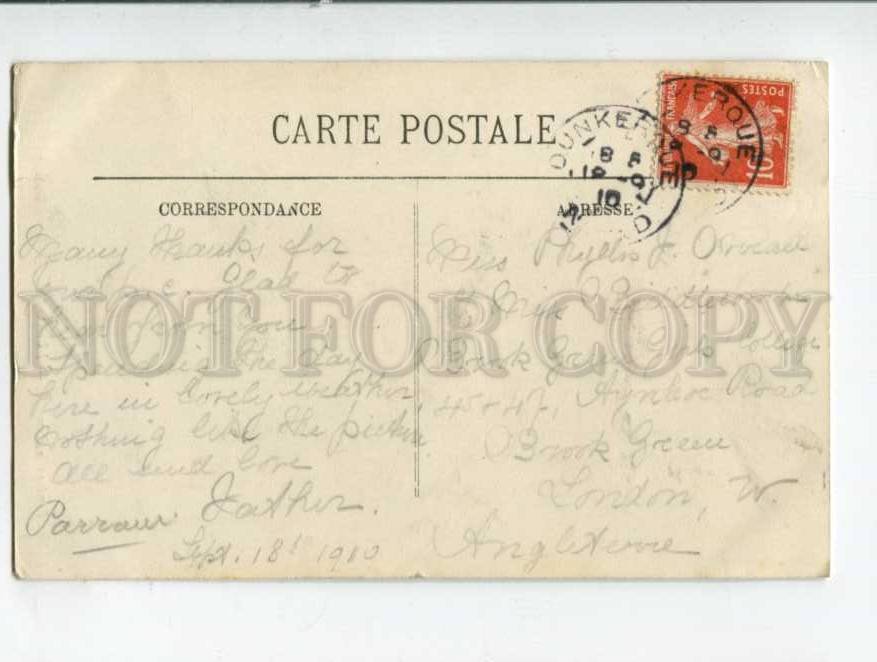 CARTE POSTALE
CORRESPONDANCE
Many thanks for
Glad to
from you
the day
here in lovely weather
nothing like the picture
all send love
Father.
Sept. 18th 1910
ADRESSE
Miss Phyllis J.
Miss
Brook Green
45 & 47, Aynhoe Road
Brook Green
London, W.
Angleterre
POSTES
10
DUNKERQUE
NORD
18 -9
10
DUNKERQUE
18 -9
10
NOT FOR COPY